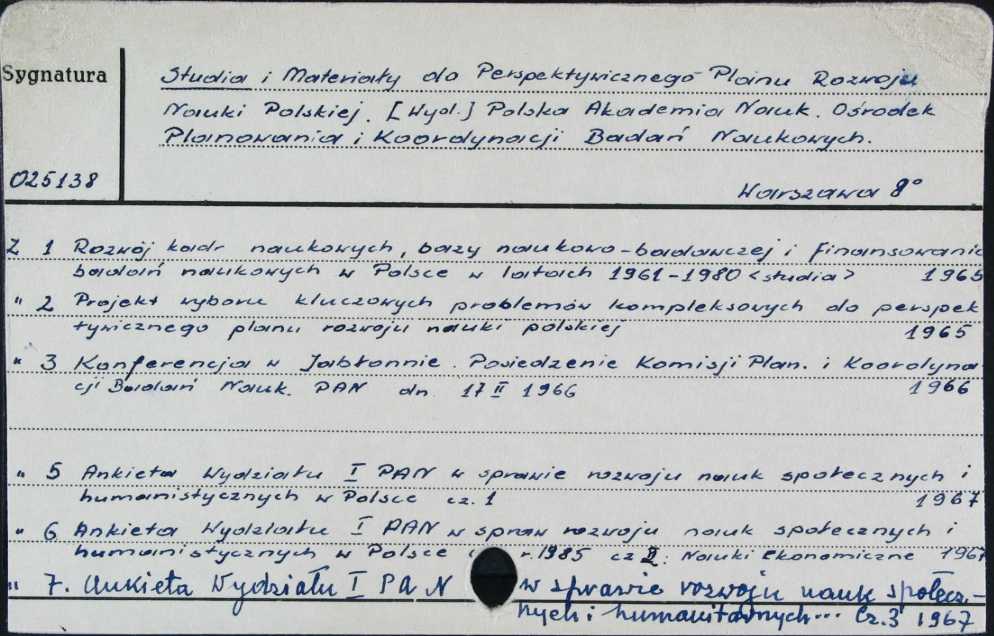 Sygnatura
025138
Studia i Materiały do Perspektywicznego Planu Rozwoju
Nauki Polskiej. [Wyd.] Polska Akademia Nauk. Ośrodek
Planowania i Koordynacji Badań Naukowych.
Warszawa 8°
Z 1 Rozwój kadr naukowych, bazy naukowo-badawczej i finansowania
badań naukowych w Polsce w latach 1961-1980 <studia> 1965
" 2 Projekt wyboru kluczowych problemów kompleksowych do perspek
tywicznego planu rozwoju nauki polskiej 1965
" 3 Konferencja w Jabłonnie. Posiedzenie Komisji Plan. i Koordyna-
cji Badań Nauk. PAN dn. 17 II 1966 1966
" 5 Ankieta Wydziału I PAN w sprawie rozwoju nauk społecznych i
humanistycznych w Polsce cz. 1 1967
" 6 Ankieta Wydziału I PAN w spraw rozwoju nauk społecznych i
humanistycznych w Polsce r. 1985 cz 2: Nauki Ekonomiczne 1967
" 7. Ankieta Wydziału I PAN w sprawie rozwoju nauk społecz-
nych i humanitarnych... Cz. 3 1967